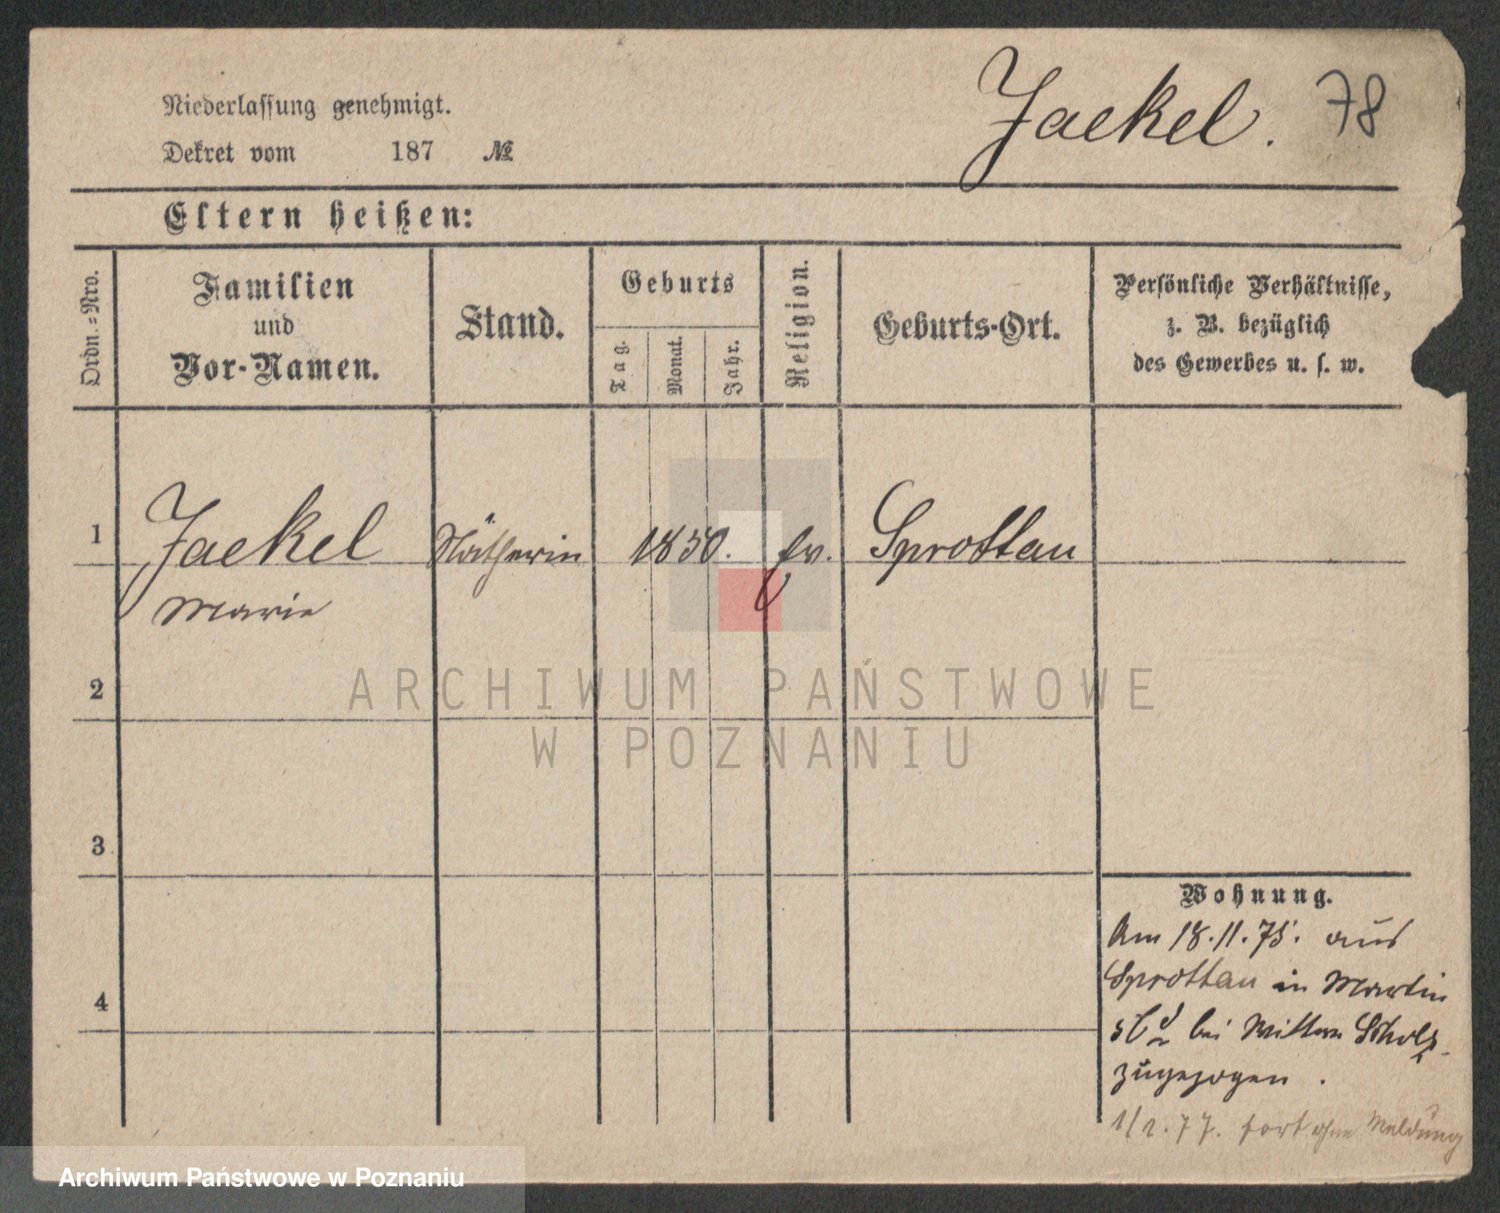 Jaekel. 78
Niederlassung genehmigt.
Dekret vom 187 №
Eltern heißen:
Ordn.-Nro.
Familien
und
Vor-Namen.
Stand.
Geburts
Tag.
Monat.
Jahr.
Religion.
Geburts-Ort.
Persönliche Verhältnisse,
z. B. bezüglich
des Gewerbes u. s. w.
1 Jaekel Nätherin 1850. ev. Sprottau
Marie
2
3
4
Wohnung.
Am 18.11.75. aus
Sprottau in Martin
bei Scholz
zugezogen.
77. fort ohne Meldung
ARCHIWUM PAŃSTWOWE
W POZNANIU
Archiwum Państwowe w Poznaniu